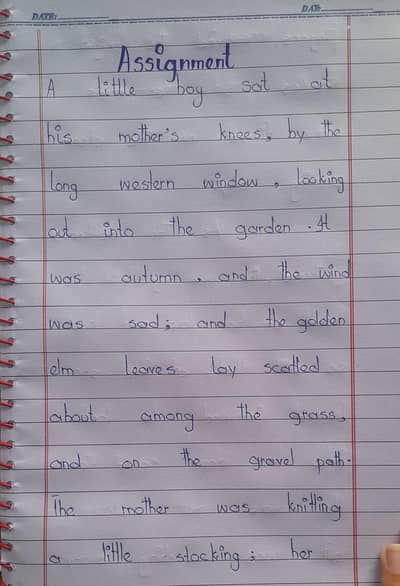 DATE:
DATE:
Assignment
A little boy sat at
his mother's knees, by the
long western window, looking
out into the garden. It
was autumn, and the wind
was sad; and the golden
elm leaves lay scattled
about among the grass,
and on the gravel path.
The mother was knitting
a little stocking; her